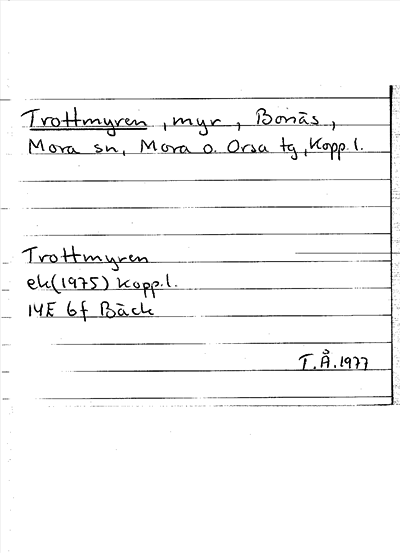 Trottmyren, myr, Bonäs,
Mora sn, Mora o. Orsa tg, Kopp. l.
Trottmyren
ek (1975) Kopp. l.
14E 6f Bäck
T.Å. 1977